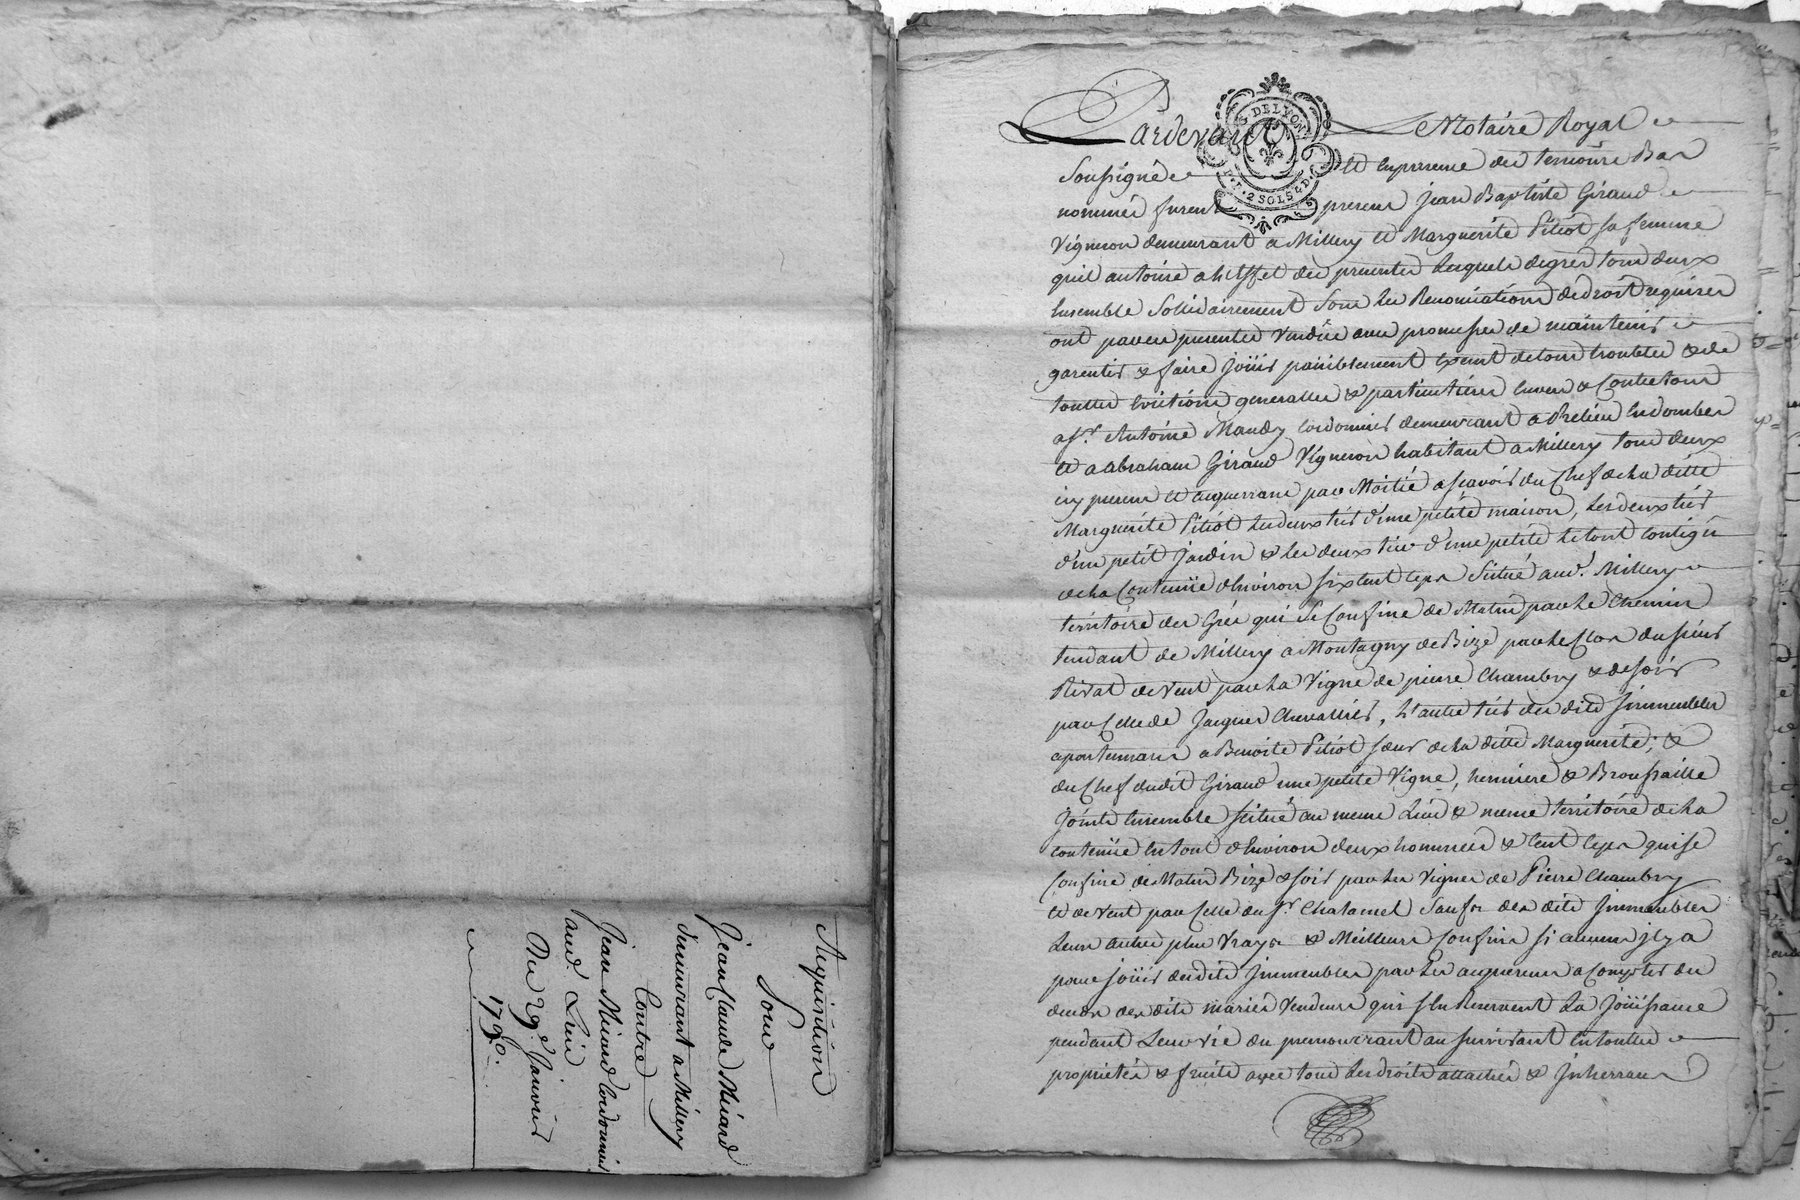 Acquisition
Pour
Jean Claude Miard
demeurant a Millery
Contre
Jean Miard Cordonnier
aud. Lieu
Du 29e Janvier
Pardevant Notaire Royal
G. DE LYON
2 SOLS 4 D.
Soussigné et en presence des temoins Bas
nommés furent presens Jean Baptiste Giraud
Vigneron demeurant a Millery et Marguerite Pitiot sa femme
quil autorise a leffet des presentes Lesquels de gré tous deux
Ensemble Solidairement Sous les Renonciations de droit requises
ont par ces presentes Vendu avec promesse de maintenir
garentir & faire joüir paisiblement exemt de tous troubles & de
touttes Evictions generalles & particulieres Envers & Contre tous
a Sr. Antoine Maudy Cordonnier demeurant a Relieu en dombes
et a abraham Giraud Vigneron habitant a Millery tous deux
icy presens et acquerrans par Moitié a scavoir du Chef de la ditte
Marguerite Pitiot Les deux tiers d'une petite maison, Les deux tiers
d'un petit Jardin & les deux tiers d'une petite Le tout contigu
de la Contenüe d'Environ six Cent Ceps Situé aud. Millery
territoire des Grés qui se Confine de Matin par le Chemin
tendant de Millery a Montagny de Bize par le Clos du sieur
Rivat de Vent par la Vigne de pierre Chambry & de soir
par Celle de Jacques Chevallier, L'autre tiers des dits Jmmeubles
apartenans a Benoite Pitiot sœur de la ditte Marguerite; &
du Chef dudit Giraud une petite Vigne, hermiere & Broussaille
Joints Ensemble scitué au meme Lieu & meme territoire de la
contenüe En tout d'Environ deux hommées & Cent Ceps qui se
Confine de Matin Bize & soir par les Vignes de Pierre Chambry
et de Vent par Celle du Sr. Chalamel Sauf des dits Jmmeubles
Leurs autres plus Vrays & Meilleurs Confins si aucuns jl y a
pour joüir desdits Jmmeubles par les acquereurs a Compter du
deces des dits mariés Vendeurs qui s'En Reservent La Joüissance
pendant Leur vie du premourant au survivant En touttes
proprietés & fruits avec tous les droits attachés & Jnherrans